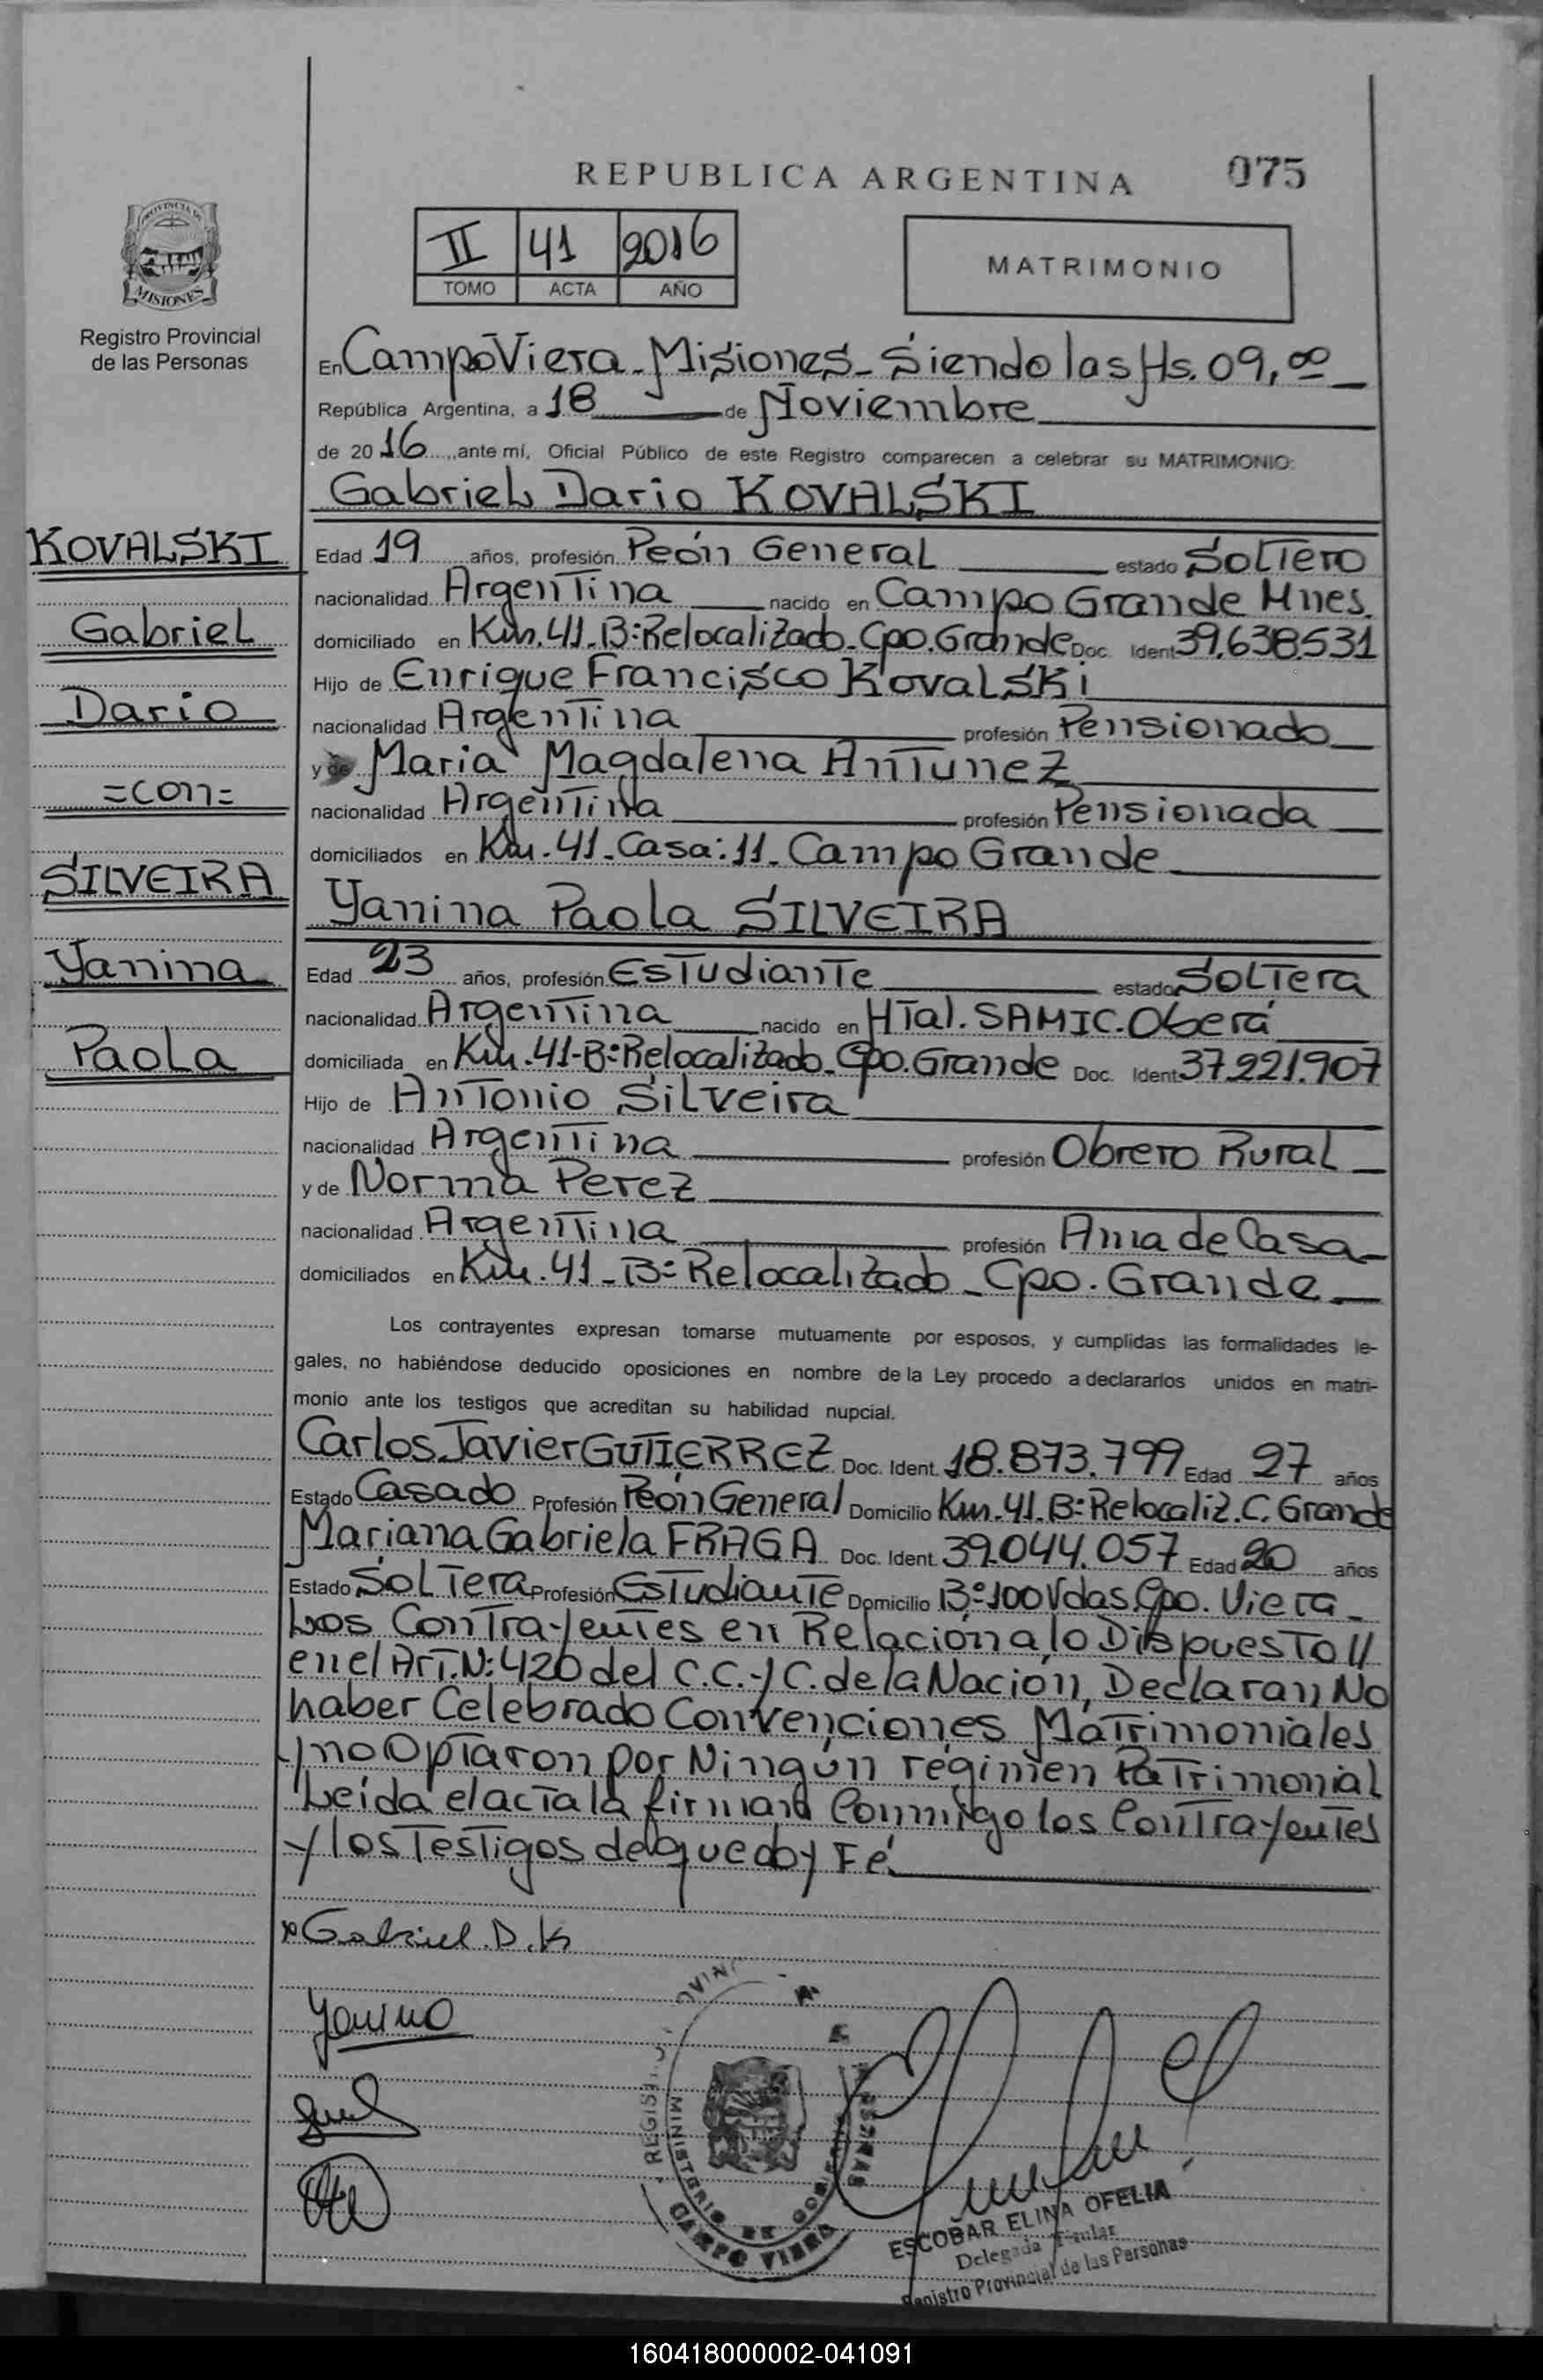 REPUBLICA ARGENTINA 075
II 41 2016
TOMO ACTA AÑO
MATRIMONIO
PROVINCIA DE
MISIONES
Registro Provincial
de las Personas
En Campo Viera - Misiones - Siendo las Hs. 09,00
República Argentina, a 18 de Noviembre
de 2016, ante mí, Oficial Público de este Registro comparecen a celebrar su MATRIMONIO:
Gabriel Dario KOVALSKI
KOVALSKI
Gabriel
Dario
=con=
SILVEIRA
Yanina
Paola
Edad 19 años, profesión Peón General estado Soltero
nacionalidad Argentina nacido en Campo Grande Mnes.
domiciliado en Km. 41-Bº: Relocalizado-Cpo. Grande Doc. Ident 39.638.531
Hijo de Enrique Francisco Kovalski
nacionalidad Argentina profesión Pensionado
y de Maria Magdalena Antunez
nacionalidad Argentina profesión Pensionada
domiciliados en Km. 41-Casa: 11-Campo Grande
Yanina Paola SILVEIRA
Edad 23 años, profesión Estudiante estado Soltera
nacionalidad Argentina nacido en Htal. SAMIC-Oberá
domiciliada en Km. 41-Bº: Relocalizado-Cpo. Grande Doc. Ident 37.221.907
Hijo de Antonio Silveira
nacionalidad Argentina profesión Obrero Rural
y de Norma Perez
nacionalidad Argentina profesión Ama de Casa
domiciliados en Km. 41-Bº: Relocalizado-Cpo. Grande
Los contrayentes expresan tomarse mutuamente por esposos, y cumplidas las formalidades le-
gales, no habiéndose deducido oposiciones en nombre de la Ley procedo a declararlos unidos en matri-
monio ante los testigos que acreditan su habilidad nupcial.
Carlos Javier GUTIERREZ Doc. Ident. 18.873.799 Edad 27 años
Estado Casado Profesión Peón General Domicilio Km. 41. Bº: Relocaliz. C. Grande
Mariana Gabriela FRAGA Doc. Ident. 39.044.057 Edad 20 años
Estado Soltera Profesión Estudiante Domicilio Bº: 100 Vdas. Cpo. Viera-
Los Contrayentes en Relación a lo Dispuesto //
en el Art. N: 420 del C.C. y C. de la Nación, Declaran No
haber Celebrado Convenciones Matrimoniales
y no Optaron por Ningún régimen Patrimonial
Leída el acta la firman Conmigo los Contrayentes
y los Testigos de lo que doy Fé.
Gabriel D. K
Yanina
MINISTERIO DE
CAMPO VIERA
ESCOBAR ELINA OFELIA
Delegada Titular
Registro Provincial de las Personas
160418000002-041091